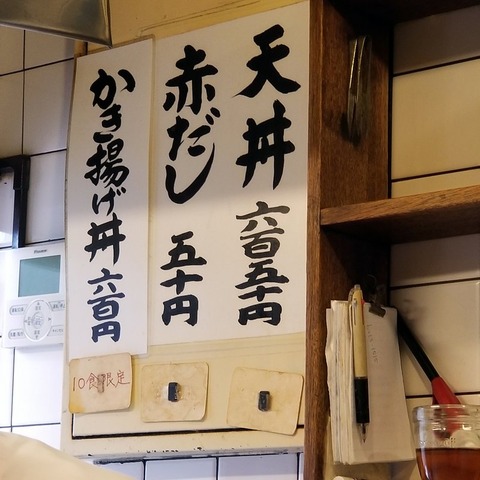 天丼 六百五十円
赤だし 五十円
かき揚げ丼 六百円
10食限定